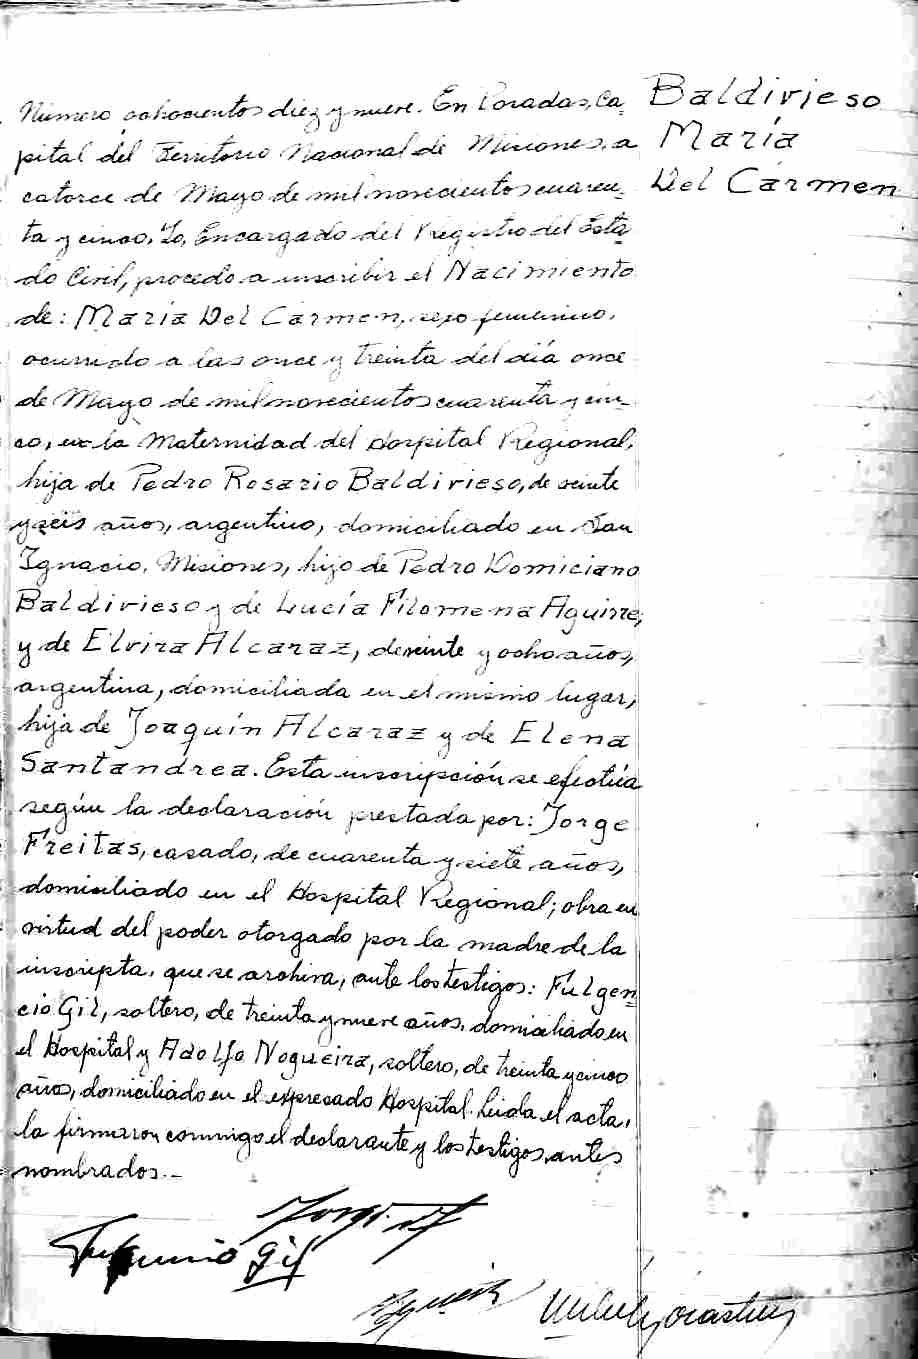 Baldivieso
María
Del Carmen
Número ochocientos diez y nueve. En Posadas, Ca=
pital del Territorio Nacional de Misiones, a
catorce de Mayo de mil novecientos cuaren=
ta y cinco. Yo, Encargado del Registro del Esta
do Civil, procedo a inscribir el Nacimiento
de: María Del Carmen, sexo femenino,
ocurrido a las once y treinta del día once
de Mayo de mil novecientos cuarenta y cin-
co, en la Maternidad del Hospital Regional,
hija de Pedro Rosario Baldivieso, de veinte
y seis años, argentino, domiciliado en San
Ignacio, Misiones, hijo de Pedro Domiciano
Baldivieso y de Lucía Filomena Aguirre;
y de Elvira Alcaraz, de veinte y ocho años,
argentina, domiciliada en el mismo lugar,
hija de Joaquín Alcaraz y de Elena
Santandrea. Esta inscripción se efectúa
según la declaración prestada por: Jorge
Freitas, casado, de cuarenta y siete años,
domiciliado en el Hospital Regional; obra en
virtud del poder otorgado por la madre de la
inscripta, que se archiva, ante los testigos: Fulgen=
cio Gil, soltero, de treinta y nueve años, domiciliado en
el Hospital y Adolfo Nogueira, soltero, de treinta y cinco
años, domiciliado en el expresado Hospital. Leida el acta,
la firmaron conmigo el declarante y los testigos, antes
nombrados.-
Jorge
Fulgencio Gil